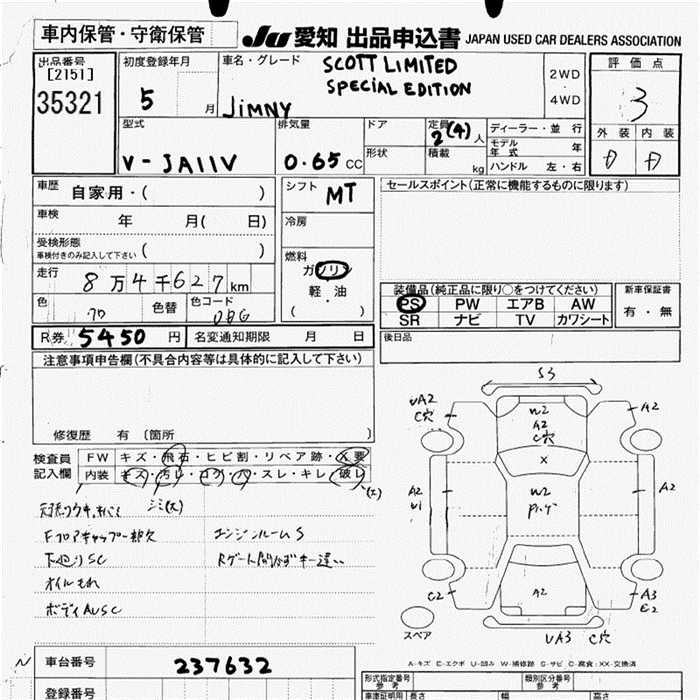 車内保管・守衛保管
JU 愛知 出品申込書 JAPAN USED CAR DEALERS ASSOCIATION
出品番号
[2151]
35321
初度登録年月
5 月
車名・グレード
SCOTT LIMITED
SPECIAL EDITION
JIMNY
2WD
・
4WD
評価点
3
外装 内装
D D
型式
V-JA11V
排気量
0.65 CC
ドア
形状
定員
2(4)人
積載
kg
ディーラー・並 行
モデル年式 年
ハンドル 左・右
車歴 自家用・( )
車検 年 月( 日)
受検形態
車検付きのみ記入して下さい ( )
走行 8万4千627km
色
色替
色コード
シフト MT
冷房
燃料
ガソリン
軽・油
( ・ )
セールスポイント(正常に機能するものに限ります)
装備品(純正品に限り○をつけてください)
PS PW エアB AW
SR ナビ TV カワシート
新車保証書
有・無
R券 5450 円
名変通知期限 月 日
後日品
注意事項申告欄(不具合内容等は具体的に記入して下さい)
修復歴 有 〔箇所 〕
検査員記入欄
FW キズ・飛石・ヒビ割・リペア跡・X要
内装 キズ・汚レ・コゲ・穴・スレ・キレ・破レ
シミ(大)
下廻りSC
エンジンルームS
オイルもれ
ボディAUSC
S3
UA2
C穴
A2
W2
A2
C穴
X
A2
U1
W2
A2
A2
C2
A3
E2
UA3 C穴
スペア
A-キズ E-エクボ U-凹み W-補修跡 S-サビ C-腐食・XX-交換済
車台番号 237632
登録番号
型式指定番号
参考
類別区分番号
参考
車庫証明用
参考
長さ
幅
高さ